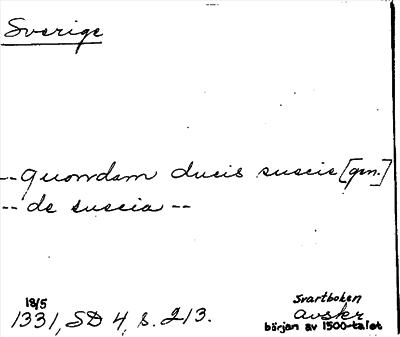 Sverige
-- quondam ducis suecie [gen.]
-- de suecia --
18/5
1331, SD 4, s. 213.
Svartboken
avskr
början av 1500-talet